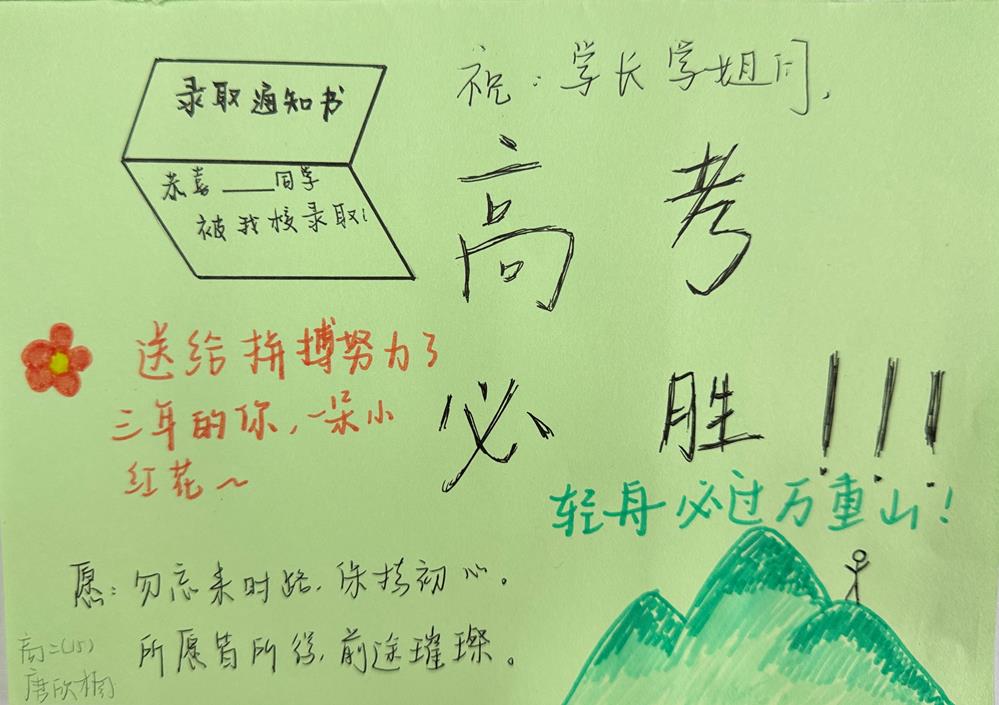 录取通知书
恭喜____同学
被我校录取!
祝：学长学姐们，
高考
必胜!!!
送给拼搏努力了
三年的你，一朵小
红花～
轻舟必过万重山!
愿：勿忘来时路，保持初心。
所愿皆所得，前途璀璨。
高二(15)
唐欣桐